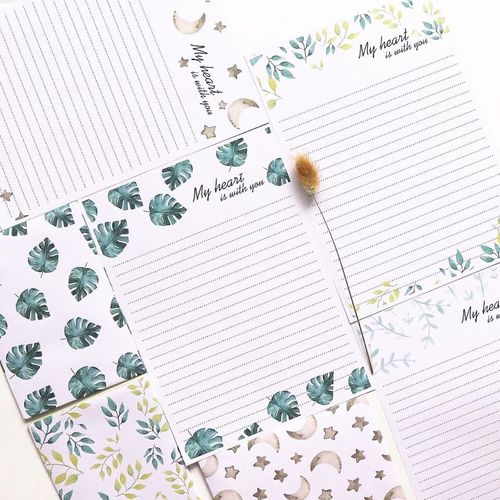 My heart
is with you
My heart
is with you
My heart
is with you
My heart
is with you